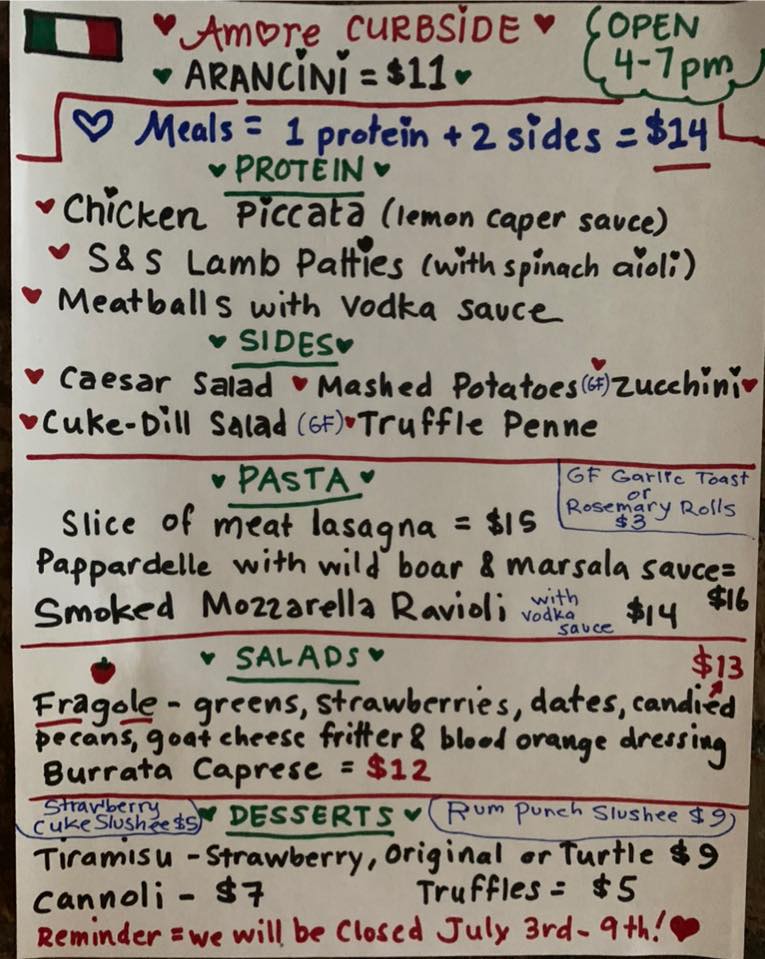 Amore CURBSIDE
OPEN
4-7pm
ARANCINI = $11
Meals = 1 protein + 2 sides = $14
PROTEIN
Chicken Piccata (lemon caper sauce)
S&S Lamb Patties (with spinach aioli)
Meatballs with Vodka sauce
SIDES
Caesar Salad Mashed Potatoes (GF) Zucchini
Cuke-Dill Salad (GF) Truffle Penne
PASTA
GF Garlic Toast
or
Rosemary Rolls
$3
Slice of meat lasagna = $15
Pappardelle with wild boar & marsala sauce=
$16
Smoked Mozzarella Ravioli with vodka sauce $14
SALADS
$13
Fragole - greens, strawberries, dates, candied
pecans, goat cheese fritter & blood orange dressing
Burrata Caprese = $12
Strawberry
Cuke Slushee $5
DESSERTS
Rum Punch Slushee $9
Tiramisu - Strawberry, Original or Turtle $9
Cannoli - $7 Truffles = $5
Reminder = we will be Closed July 3rd - 9th!